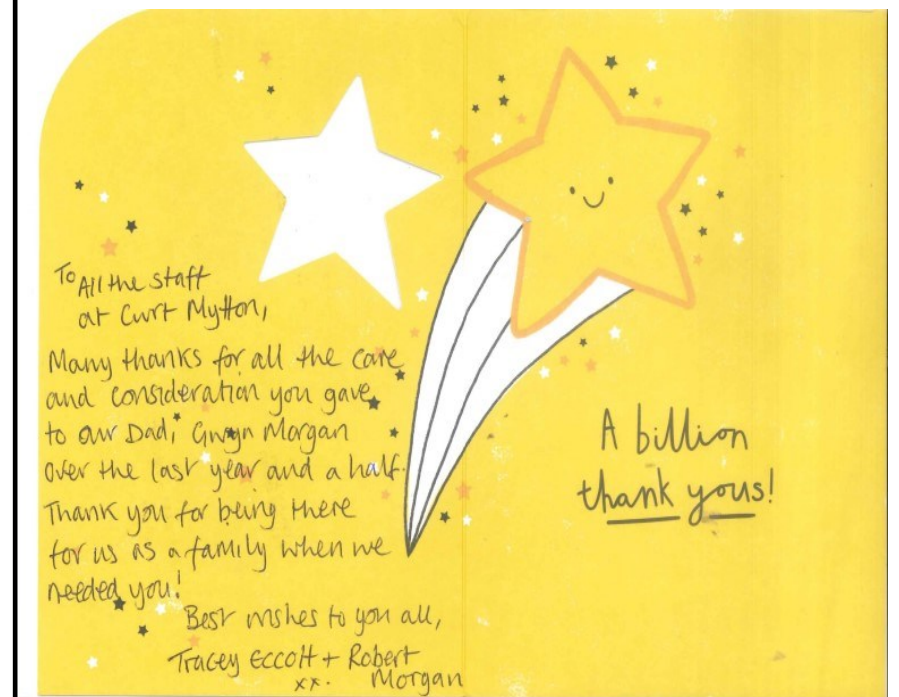 To All the staff
at Cwrt Mytton,
Many thanks for all the care
and consideration you gave
to our Dad, Gwyn Morgan
over the last year and a half.
Thank you for being there
for us as a family when we
needed you!
Best wishes to you all,
Tracey Eccott + Robert
xx. Morgan
A billion
thank yous!